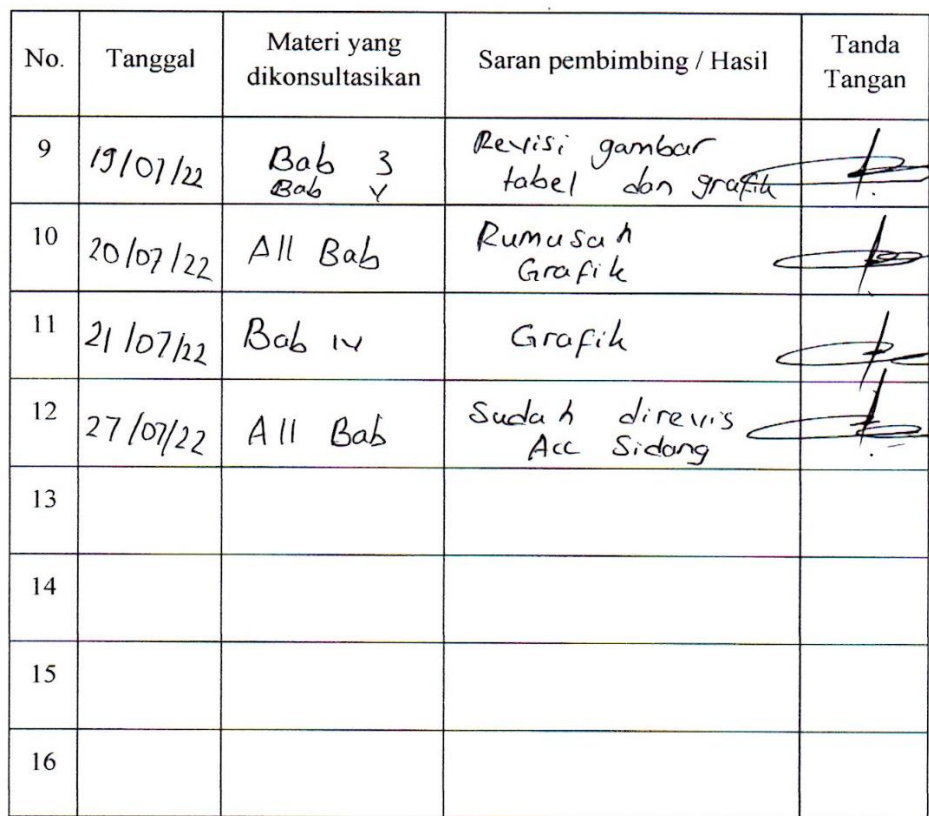 No. Tanggal Materi yang dikonsultasikan Saran pembimbing / Hasil Tanda Tangan
9 19/07/22 Bab 3 Revisi gambar
Bab V tabel dan grafik
10 20/07/22 All Bab Rumusah
Grafik
11 21/07/22 Bab IV Grafik
12 27/07/22 All Bab Sudah direvis
Acc Sidang
13
14
15
16